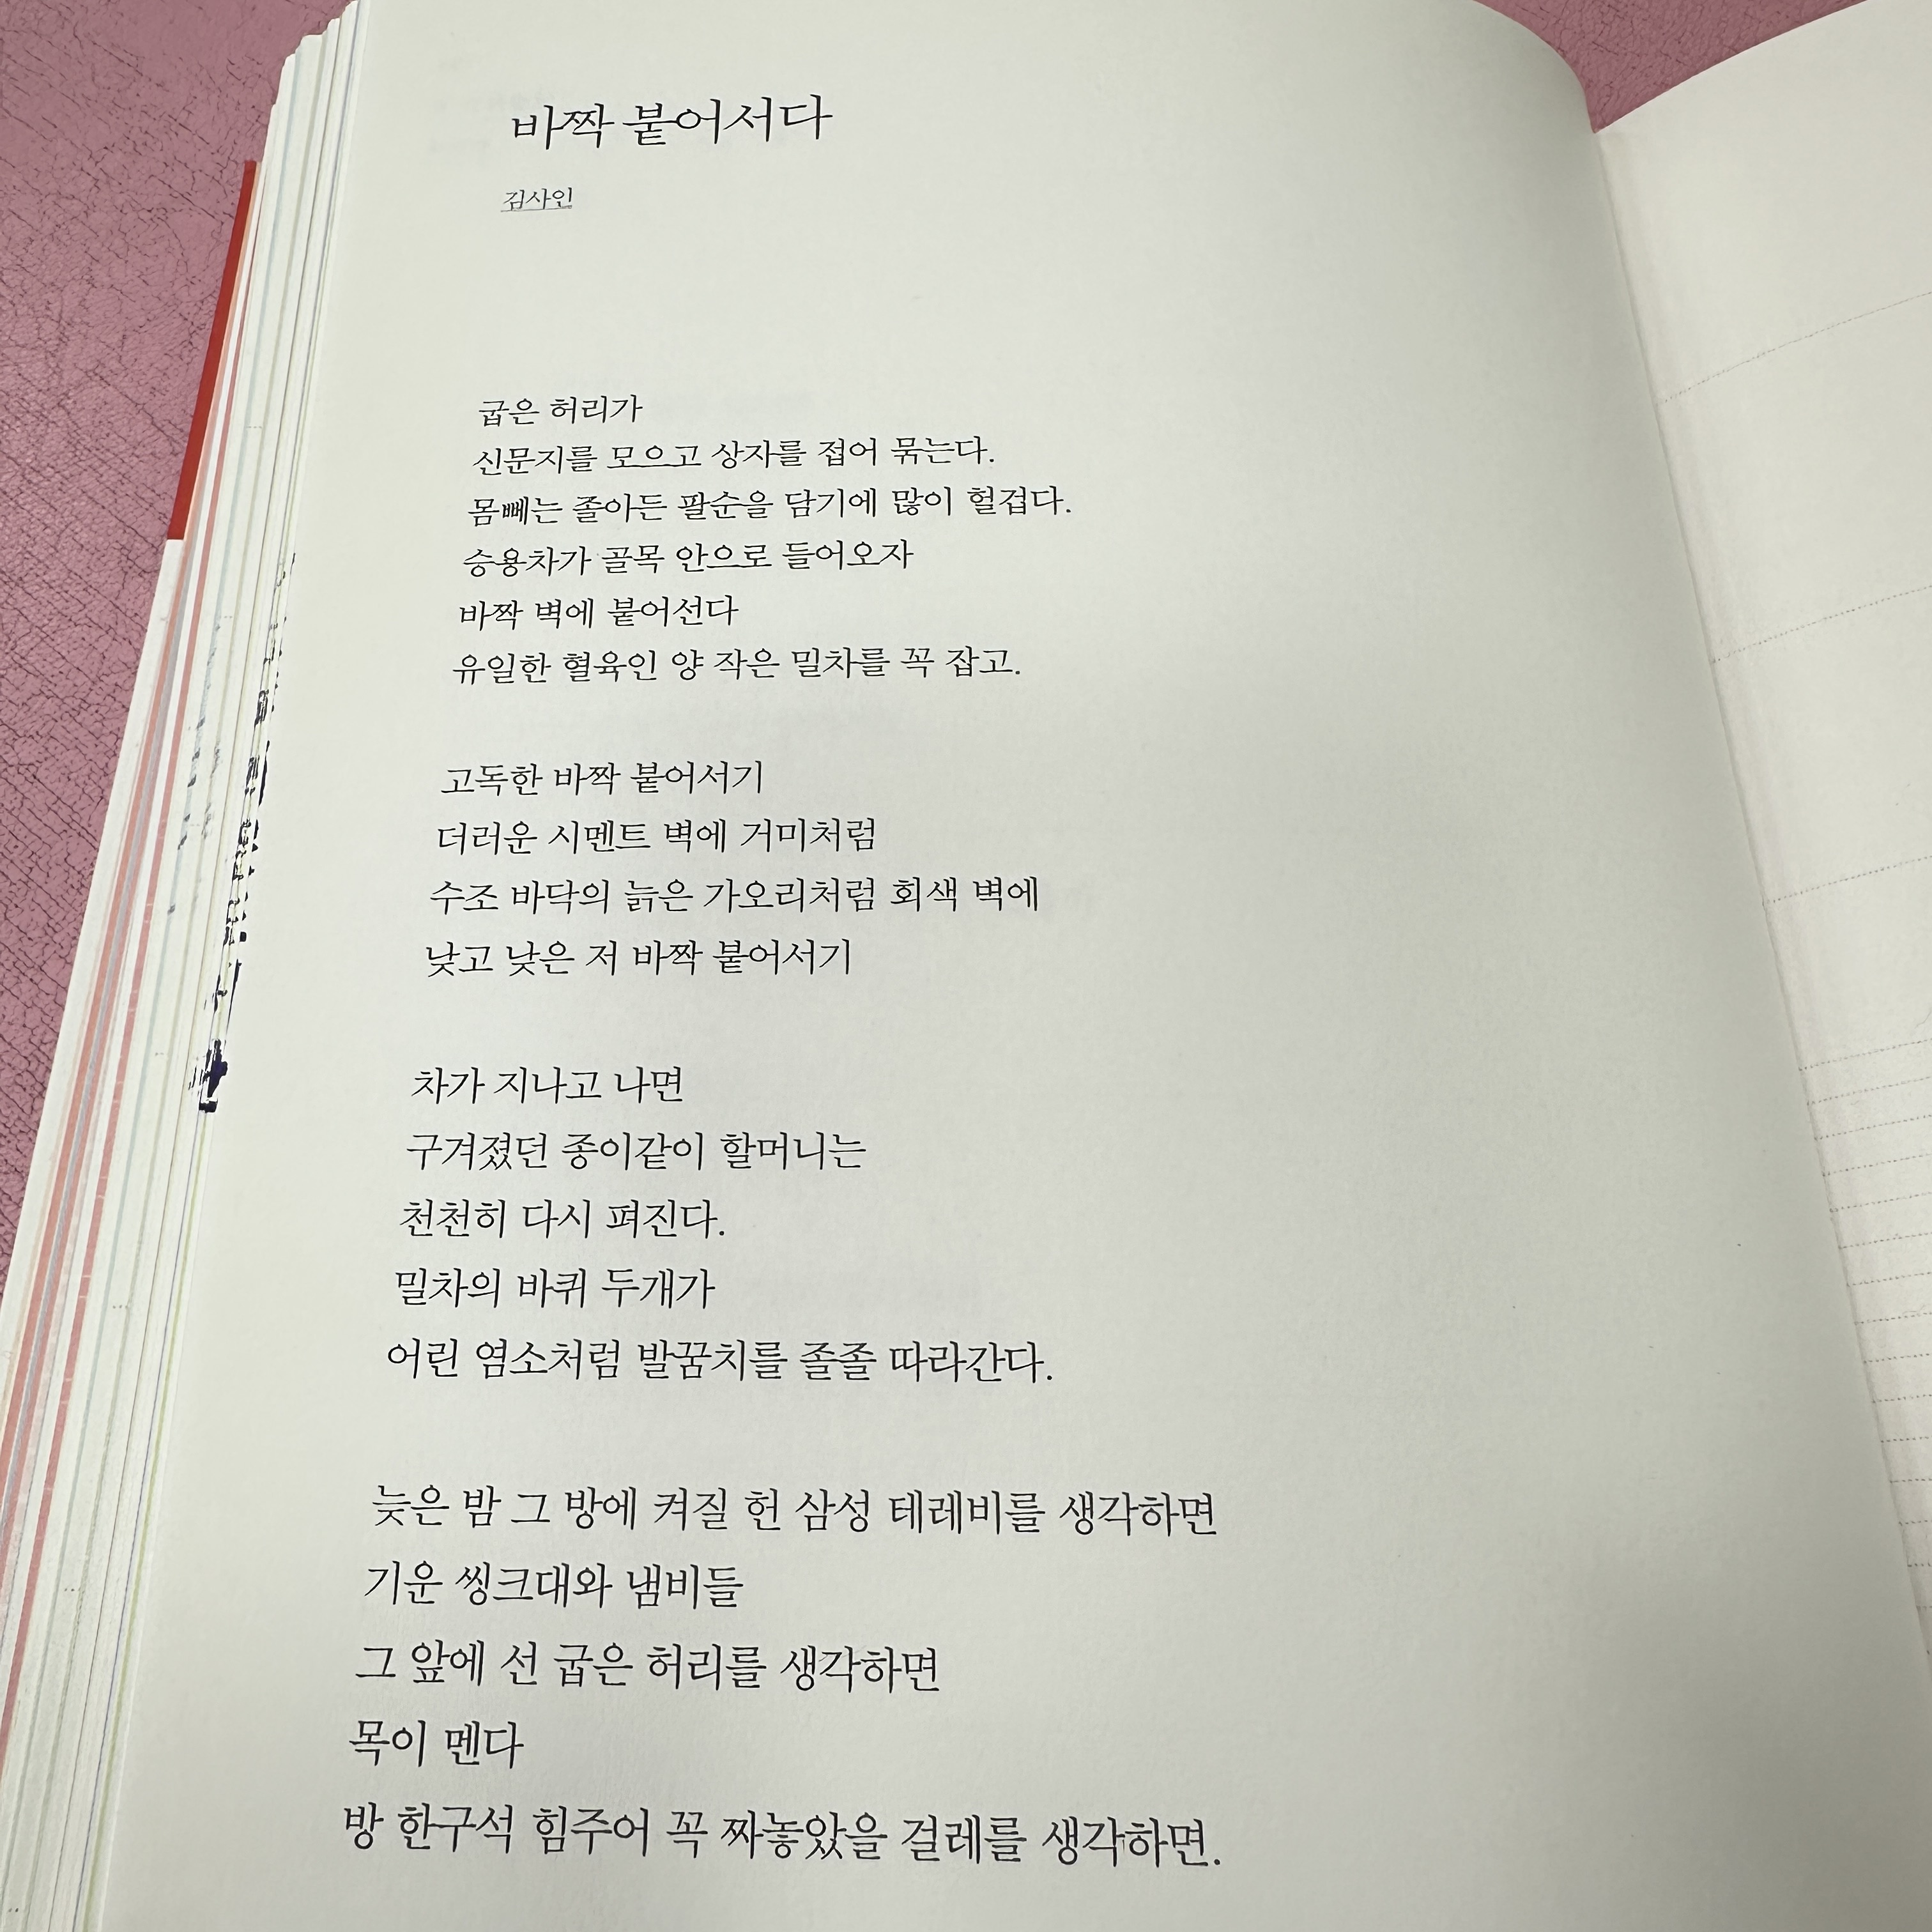 바짝 붙어서다
김사인
굽은 허리가
신문지를 모으고 상자를 접어 묶는다.
몸뻬는 졸아든 팔순을 담기에 많이 헐겁다.
승용차가 골목 안으로 들어오자
바짝 벽에 붙어선다
유일한 혈육인 양 작은 밀차를 꼭 잡고.
고독한 바짝 붙어서기
더러운 시멘트 벽에 거미처럼
수조 바닥의 늙은 가오리처럼 회색 벽에
낮고 낮은 저 바짝 붙어서기
차가 지나고 나면
구겨졌던 종이같이 할머니는
천천히 다시 펴진다.
밀차의 바퀴 두개가
어린 염소처럼 발꿈치를 졸졸 따라간다.
늦은 밤 그 방에 켜질 헌 삼성 테레비를 생각하면
기운 씽크대와 냄비들
그 앞에 선 굽은 허리를 생각하면
목이 멘다
방 한구석 힘주어 꼭 짜놓았을 걸레를 생각하면.